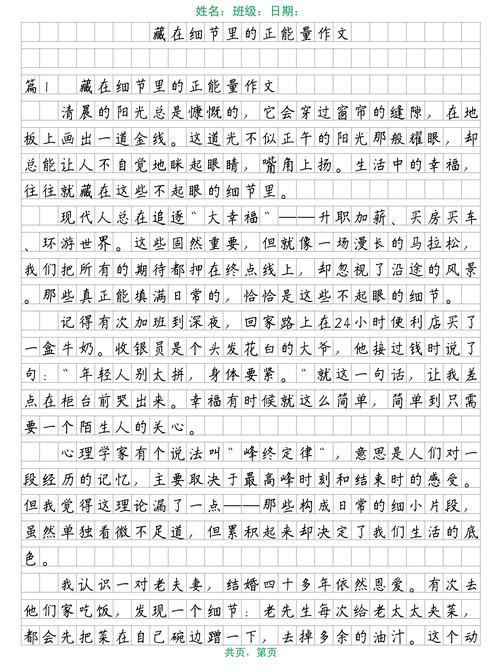 姓名：班级：日期：
藏在细节里的正能量作文
篇1 藏在细节里的正能量作文
清晨的阳光总是慷慨的，它会穿过窗帘的缝隙，在地
板上画出一道金线。这道光不似正午的阳光那般耀眼，却
总能让人不自觉地眯起眼睛，嘴角上扬。生活中的幸福，
往往就藏在这些不起眼的细节里。
现代人总在追逐“大幸福”——升职加薪、买房买车
、环游世界。这些固然重要，但就像一场漫长的马拉松，
我们把所有的期待都押在终点线上，却忽视了沿途的风景
。那些真正能填满日常的，恰恰是这些不起眼的细节。
记得有次加班到深夜，回家路上在24小时便利店买了
一盒牛奶。收银员是个头发花白的大爷，他接过钱时说了
句：“年轻人别太拼，身体要紧。”就这一句话，让我差
点在柜台前哭出来。幸福有时候就这么简单，简单到只需
要一个陌生人的关心。
心理学家有个说法叫“峰终定律”，意思是人们对一
段经历的记忆，主要取决于最高峰时刻和结束时的感受。
但我觉得这理论漏了一点——那些构成日常的细小片段，
虽然单独看微不足道，但累积起来却决定了我们生活的底
色。
我认识一对老夫妻，结婚四十多年依然恩爱。有次去
他们家吃饭，发现一个细节：老先生每次给老太太夹菜，
都会先把菜在自己碗边蹭一下，去掉多余的油汁。这个动
共页，第页